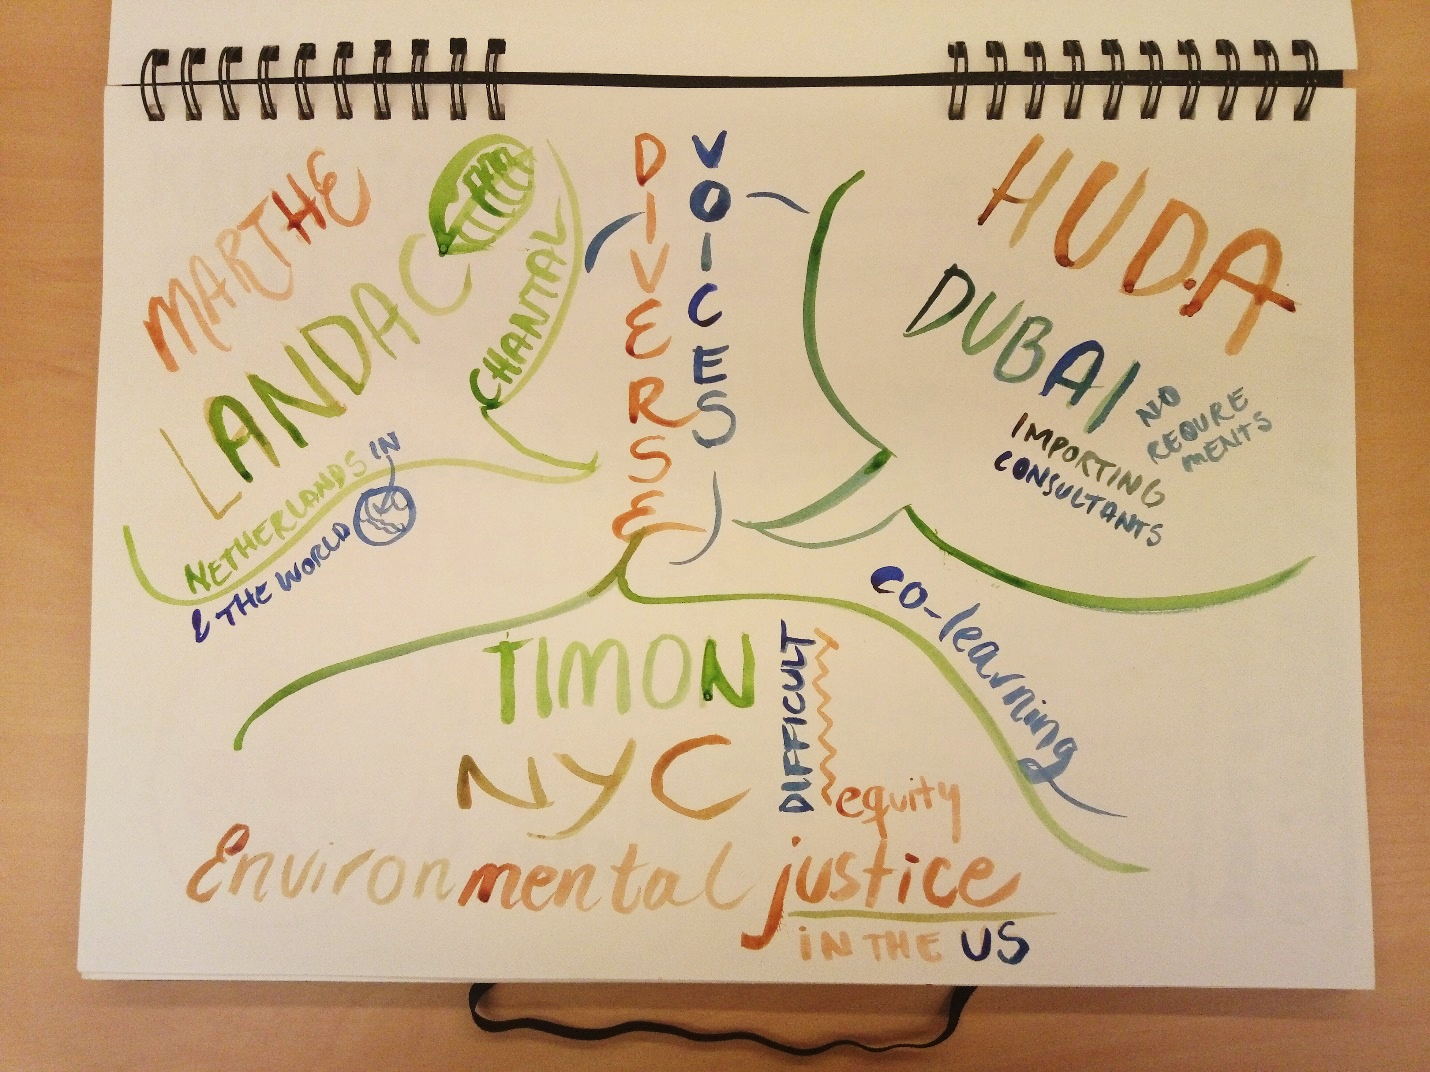 DIVERSE
VOICES
MARTHE
LANDAC
CHANTAL
NETHERLANDS IN
& THE WORLD
HUDA
DUBAI
NO
REQURE
MENTS
IMPORTING
CONSULTANTS
CO-learning
TIMON
NYC
DIFFICULT
equity
Environmental justice
IN THE US